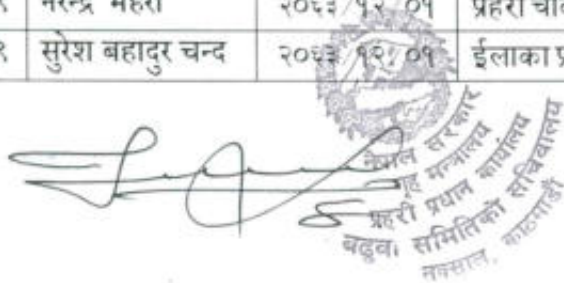 ९ नरेन्द्र महरा २०६३/१२/०१ प्रहरी
९ सुरेश बहादुर चन्द २०६३/१२/०१ ईलाका
नेपाल सरकार
गृह मन्त्रालय
प्रहरी प्रधान कार्यालय
बढुवा समितिको सचिवालय
नक्साल, काठमाडौं